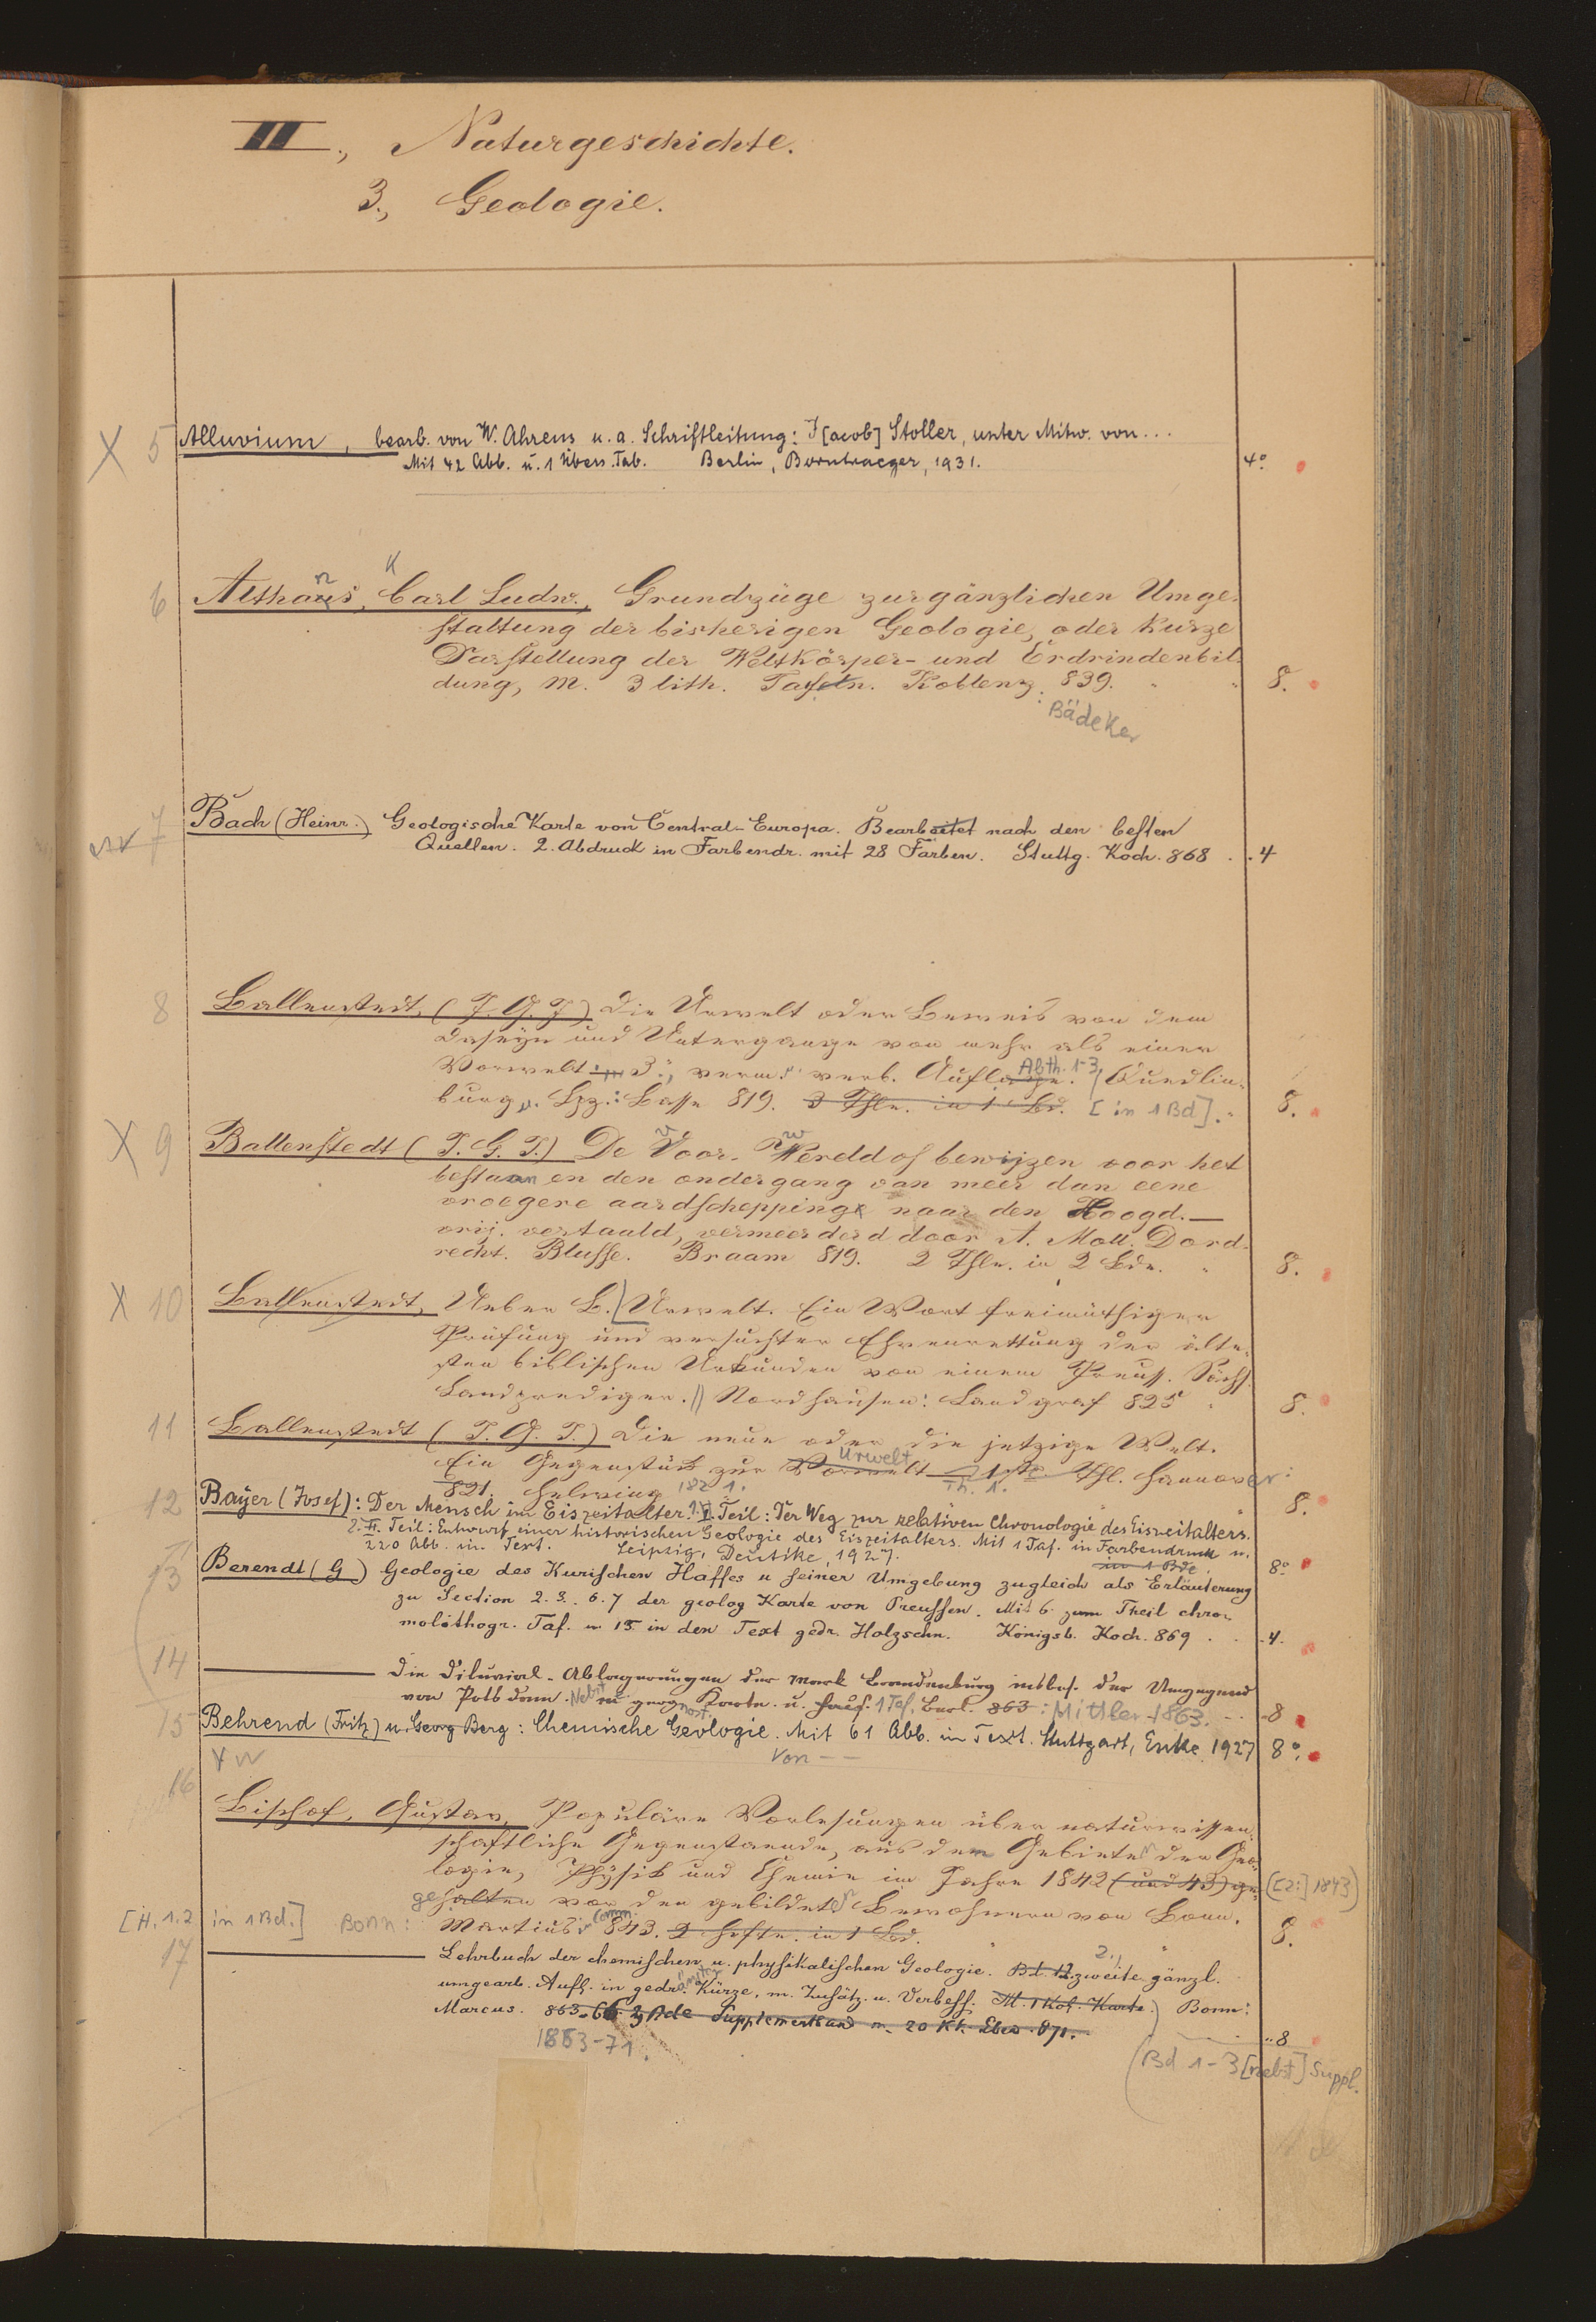 III., Naturgeschichte.
3., Geologie.
X 5 Alluvium, bearb. von W. Ahrens u. a. Schriftleitung: J[acob] Stoller, unter Mitw. von...
Mit 42 Abb. u. 1 Übers. Tab. Berlin, Borntraeger, 1931. 4°
K
6 Althans, Carl Ludw., Grundzüge zur gänzlichen Umge-
staltung der bisherigen Geologie, oder kurze
Darstellung der Weltkörper- und Erdrindenbil-
dung, m. 3 lith. Tafeln. Koblenz. 839. 8.
: Bädeker
7 Bach (Heinr.) Geologische Karte von Central-Europa. Bearbeitet nach den besten
Quellen. 2. Abdruck in Farbendr. mit 28 Farben. Stuttg. Koch. 868 . . 4
8 Ballenstedt, (J. G. J.) Die Urwelt oder Beweis von dem
Daseyn und Untergange von mehr als einer
Vorwelt. 3., verm. verb. Auflage. Abth. 1-3 / Quedlin-
burg u. Lpz.: Basse 819. 3 Thle. in 1 Bd. [in 1 Bd]. 8.
X 9 Ballenstedt (J. G. J.) De Voor-Wereld of bewijzen voor het
bestaan en den ondergang van meer dan eene
vroegere aardschepping naar den Hoogd.—
vrij. vertaald, vermeerderd door A. Moll. Dord-
recht. Blusse. Braam 819. 2 Thle. in 2 Bde. 8.
X 10 Ballenstedt, Ueber B. Urwelt. Ein Wort freimüthiger
Prüfung und versuchter Ehrenrettung der älte-
sten biblischen Urkunden von einem Preuss. Sächs.
Landprediger. // Nordhausen: Landgraf 825 8.
11 Ballenstedt (J. G. J.) Die neue oder die jetzige Welt.
Ein Gegenstück zur Vorwelt Urwelt 1ste. Thl. Hannover:
821. Helwing 1821. Th. 1. 8.
12 Bayer (Josef): Der Mensch im Eiszeitalter. 1. I. Teil: Der Weg zur relativen Chronologie des Eiszeitalters.
2. II. Teil: Entwurf einer historischen Geologie des Eiszeitalters. Mit 1 Taf. in Farbendruck u.
220 Abb. im Text. Leipzig, Deuticke, 1927. in 1 Bde. 8°
13 Berendt (G.) Geologie des Kurischen Haffes u seiner Umgebung zugleich als Erläuterung
zu Section 2. 3. 6. 7 der geolog Karte von Preussen. Mit 6 zum Theil chro-
molithogr. Taf. u 15 in den Text gedr. Holzschn. Königsb. Koch. 869 . . 4.
14 ——— Die Diluvial-Ablagerungen der Mark Brandenburg insbes. der Umgegend
von Potsdam. Nebst geogn. Karte u. 1 Taf. Berl. 863 : Mittler 1863. 8
15 Behrend (Fritz) u. Georg Berg: Chemische Geologie. Mit 61 Abb. im Text. Stuttgart, Enke, 1927 8°.
von — —
16 Bischof, Gustav, Populäre Vorlesungen über naturwissen-
schaftliche Gegenstaende, aus dem Gebiete der Geo-
logie, Physik und Chemie im Jahre 1842 (und 43) ge- ([2:] 1843)
gehalten vor den gebildeten Bewohnern von Bonn.
[H. 1.2 in 1 Bd.] Bonn: Martius Comm. 843. 2 Hefte. in 1 Bd. 8.
17 ——— Lehrbuch der chemischen u. physikalischen Geologie. Bd. 1.2. 2., zweite gänzl.
umgearb. Aufl. in gedr. Kürze, m. Zusätz. u. Verbess. M. 1 Kol. Karte.) Bonn:
Marcus. 863-66. 3 Bde Supplementband m. 20 Kk. Ebd. 871. 8
1863-71.
(Bd 1-3 [nebst] Suppl.